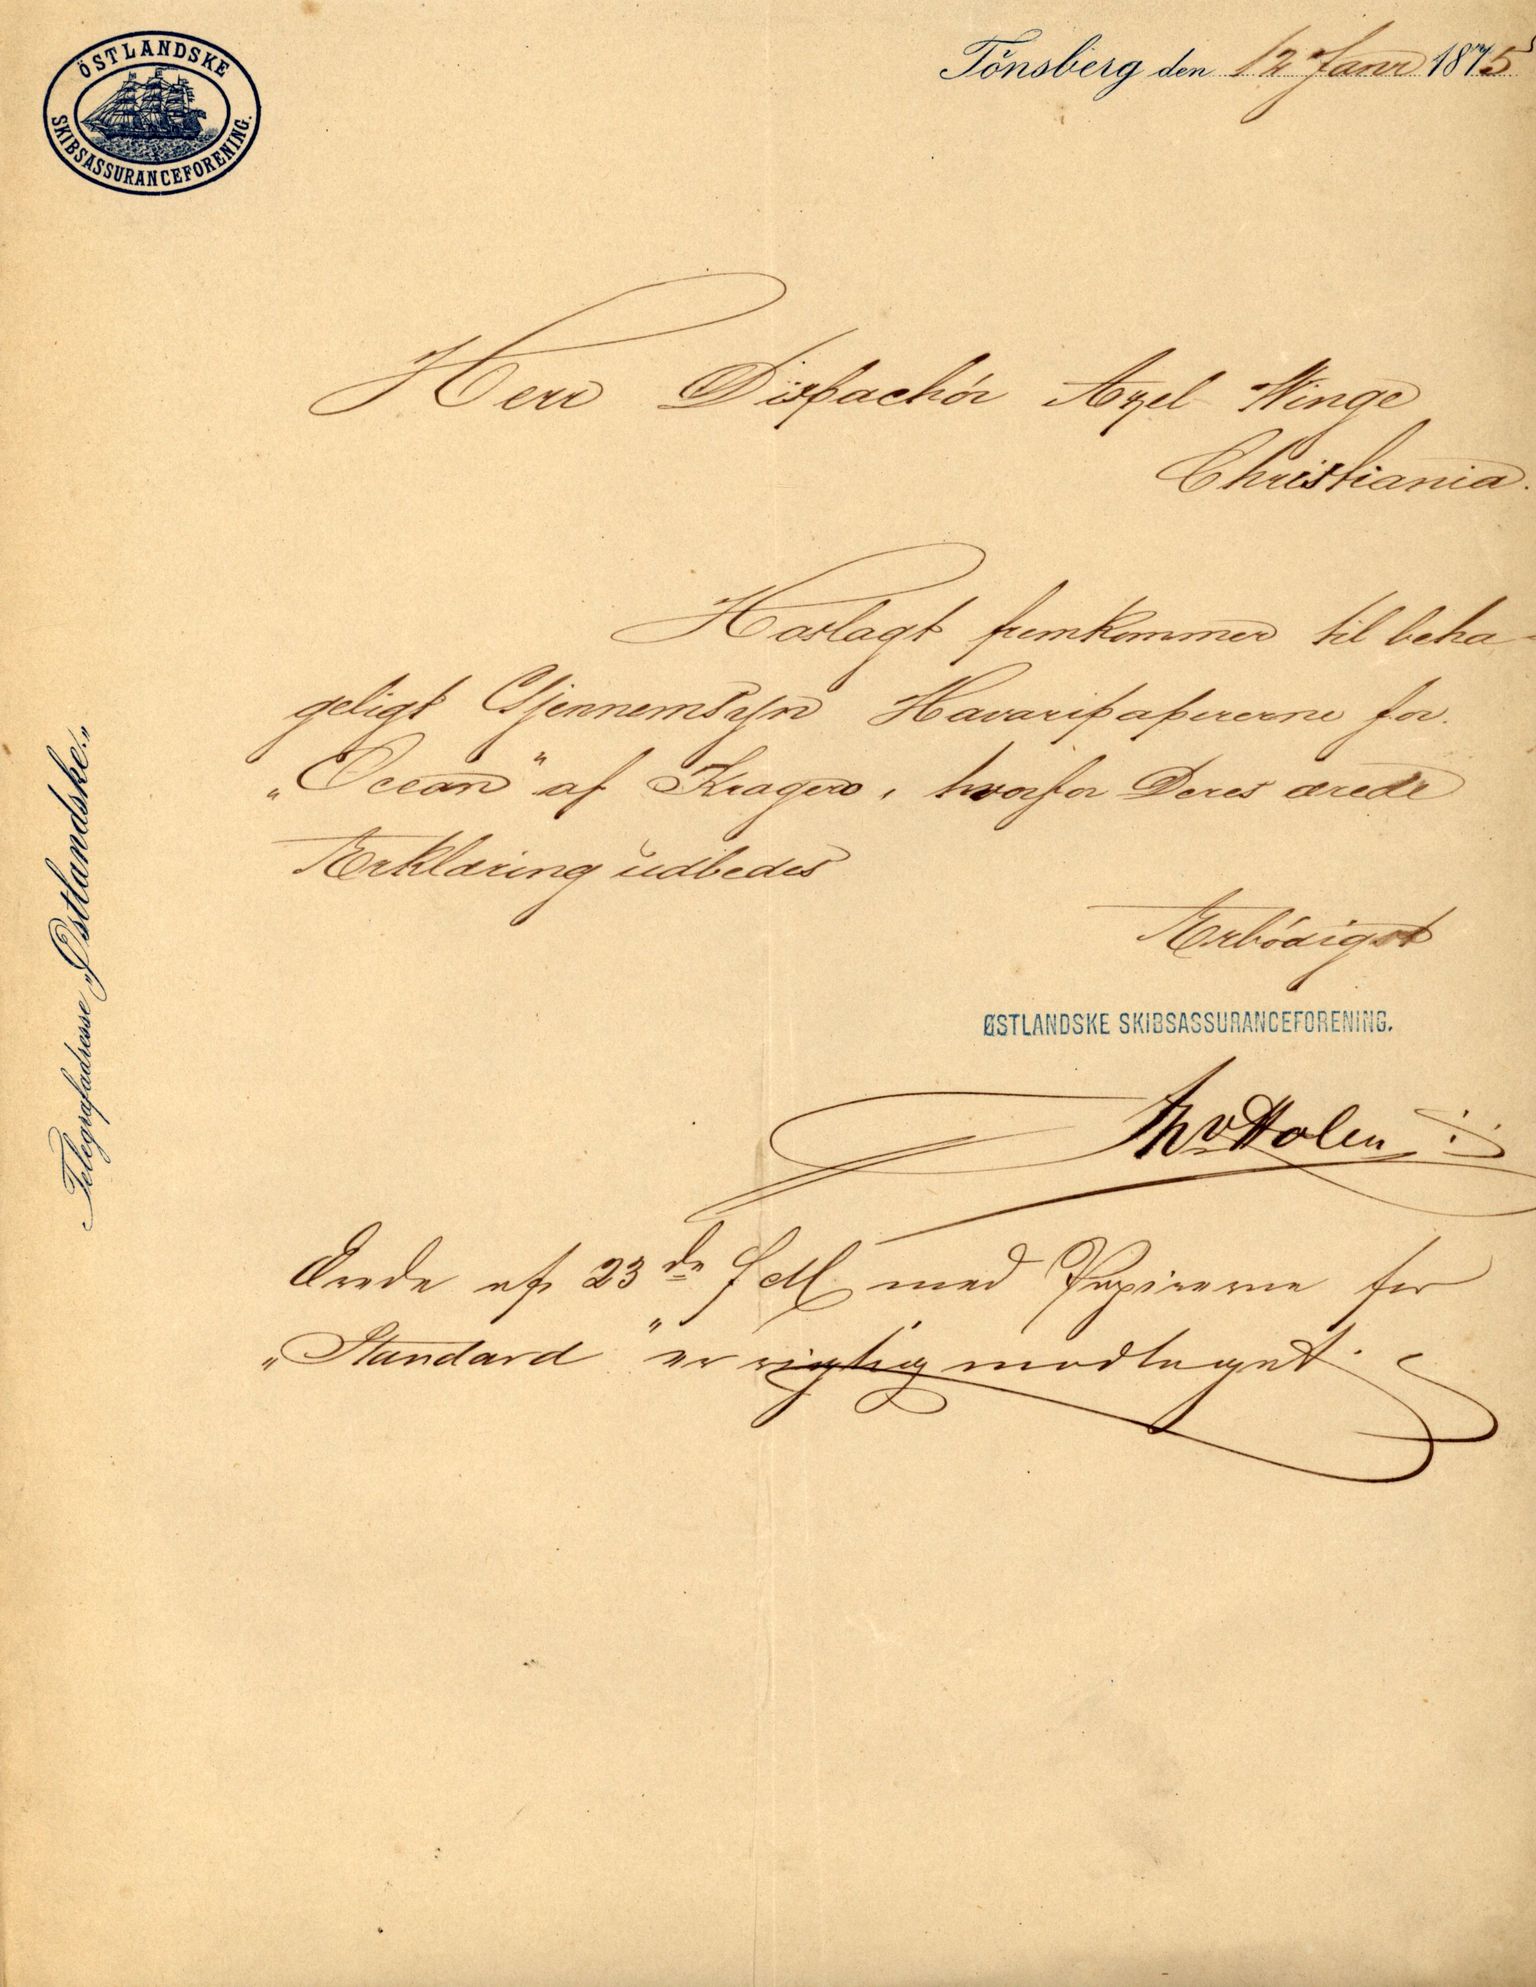 ÖSTLANDSKE
SKIBSASSURANCEFORENING.
Tönsberg den 12 Janr 1875
Herr Dispachör Axel Winge
Christiania.
Hoslagt fremkommer til beha-
geligt Gjennemsyn Havaripapirerne for
„Ocean" af Kragerø, hvorfor Deres ærede
Erklæring udbedes
Ærbödigst
ØSTLANDSKE SKIBSASSURANCEFORENING.
Th v Holen
Ærede af 23de f M. med Papirerne for
„Standard" er rigtig modtaget.
Telegrafadresse „Østlandske."